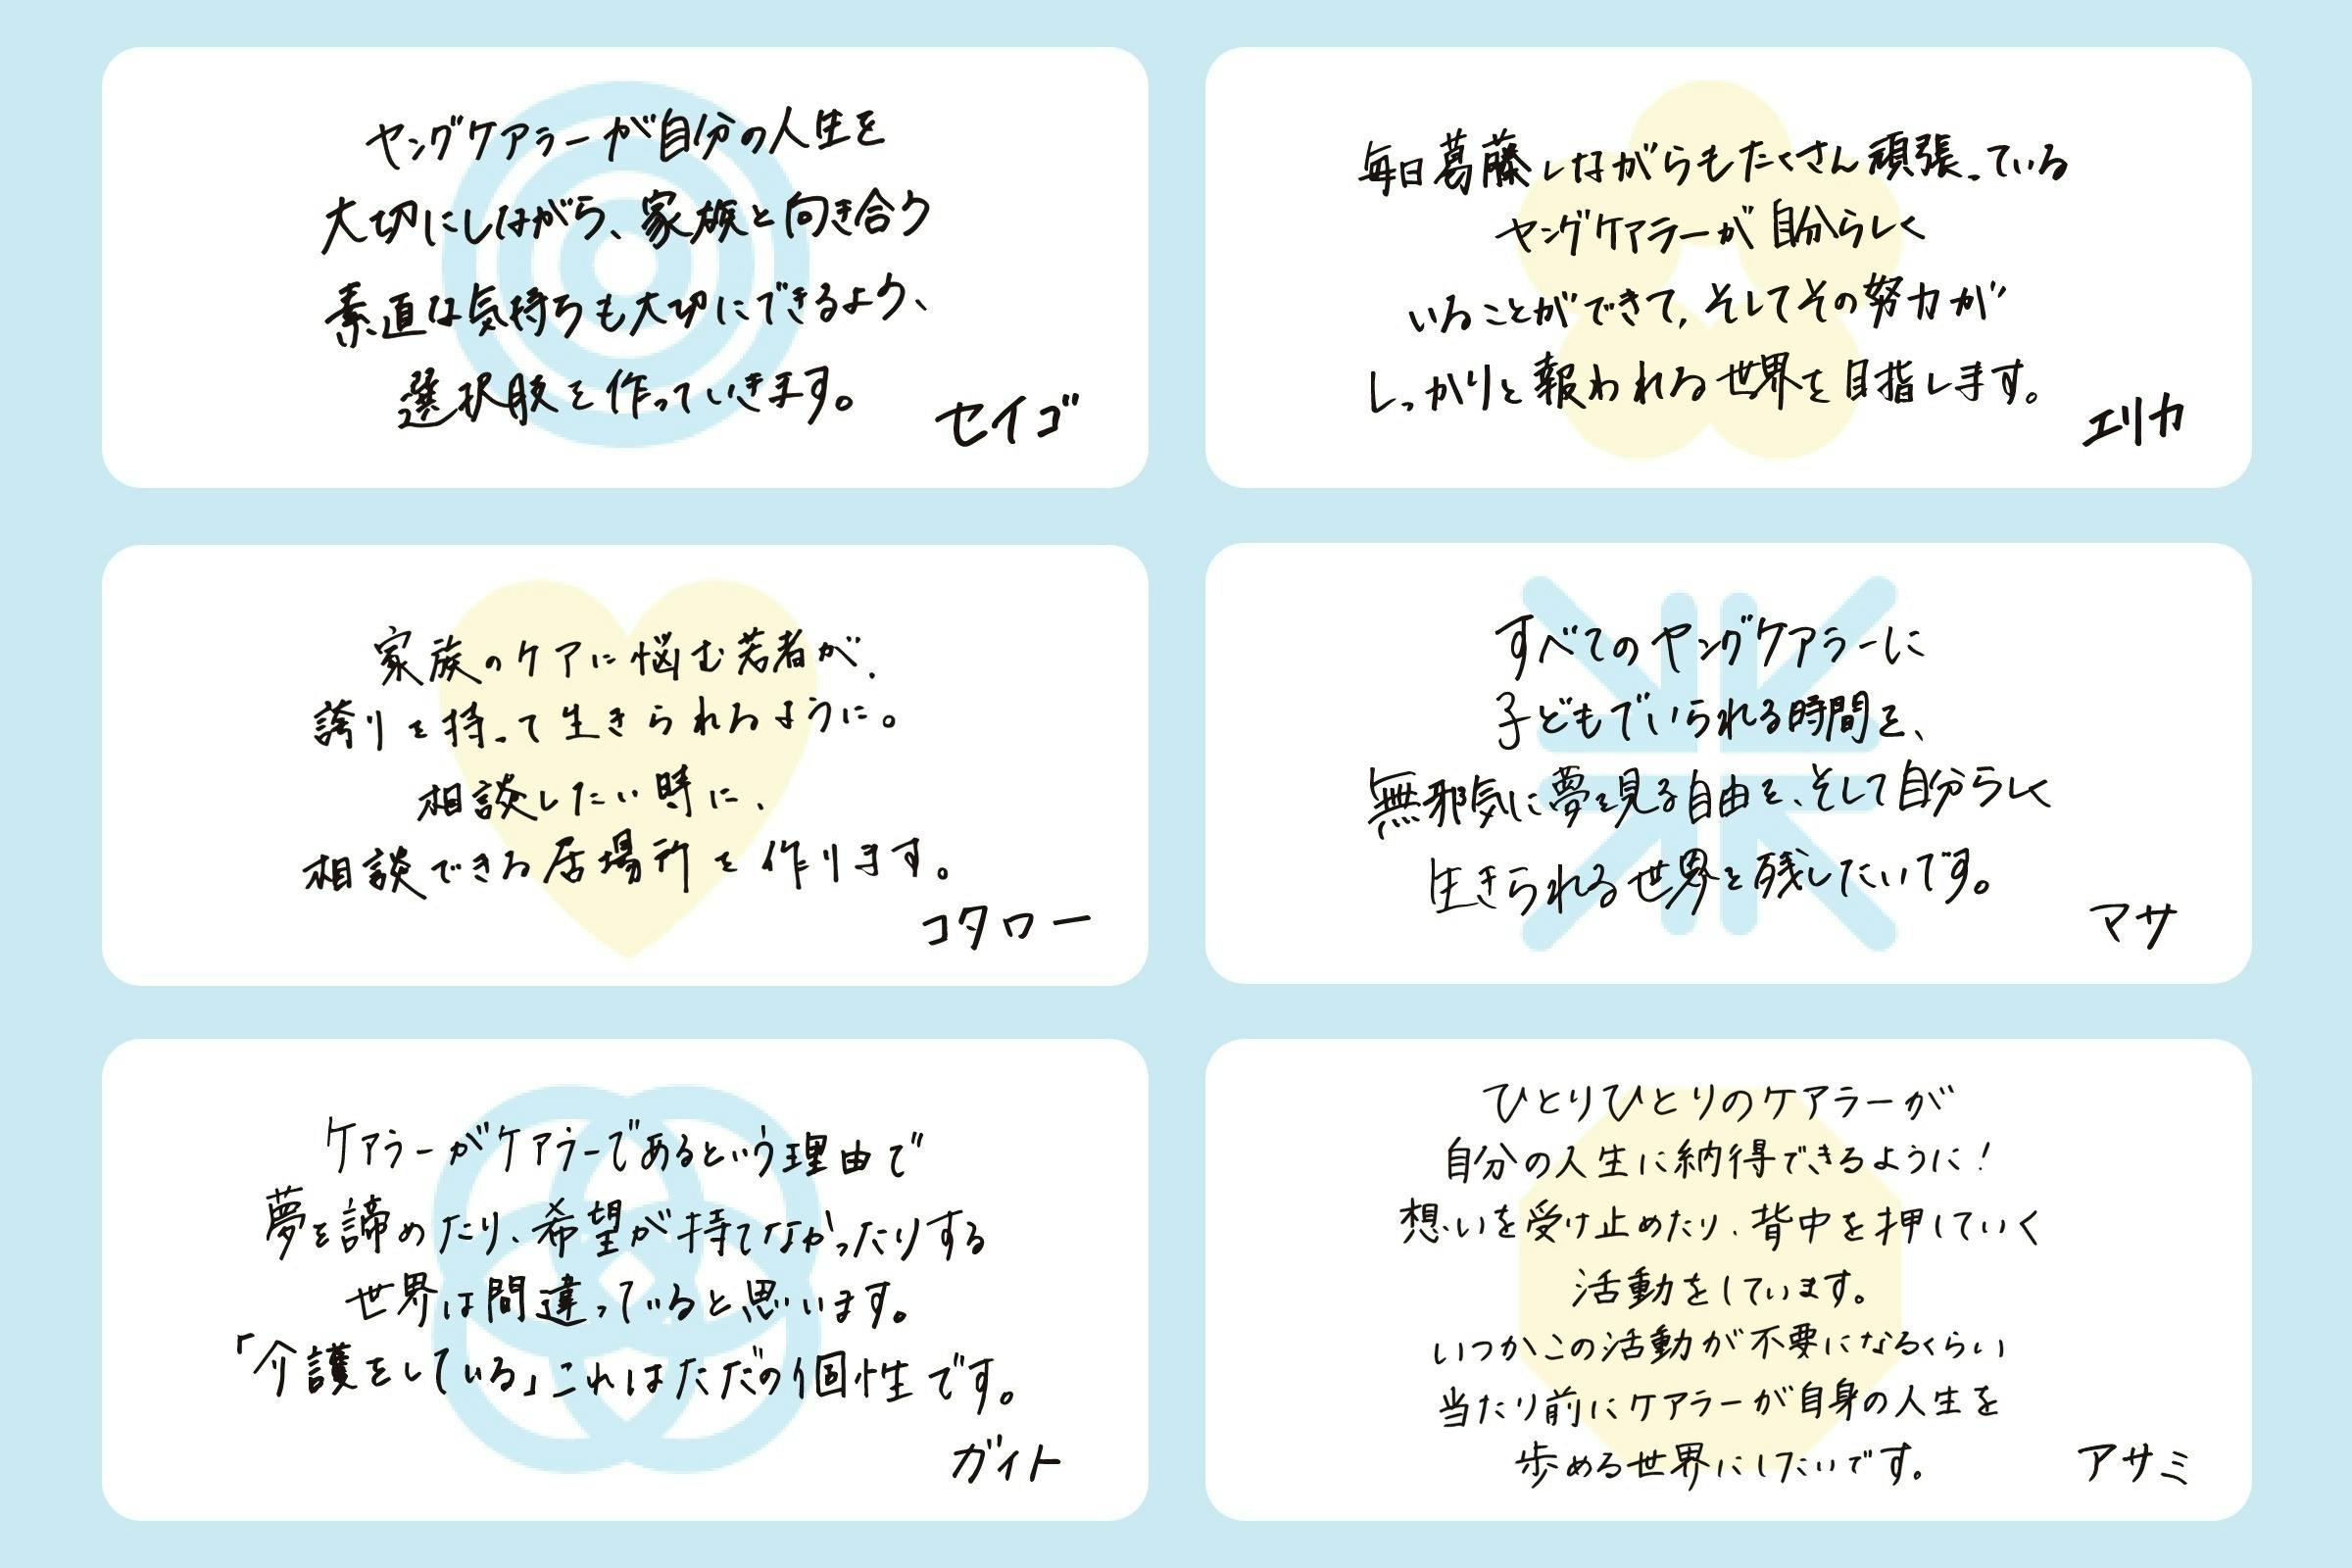 ヤングケアラーが自分の人生を
大切にしながら、家族と向き合う
素直な気持ちも大切にできるよう、
選択肢を作っていきます。
セイゴ
毎日葛藤しながらもたくさん頑張っている
ヤングケアラーが自分らしく
いることができて、そしてその努力が
しっかりと報われる世界を目指します。
エリカ
家族のケアに悩む若者が、
誇りを持って生きられるように。
相談したい時に、
相談できる居場所を作ります。
コタロー
すべてのヤングケアラーに
子どもでいられる時間を、
無邪気に夢を見る自由を、そして自分らしく
生きられる世界を残したいです。
マサ
ケアラーがケアラーであるという理由で
夢を諦めたり、希望が持てなかったりする
世界は間違っていると思います。
「介護をしている」これはただの個性です。
ガイト
ひとりひとりのケアラーが
自分の人生に納得できるように！
想いを受け止めたり、背中を押していく
活動をしています。
いつかこの活動が不要になるくらい
当たり前にケアラーが自身の人生を
歩める世界にしたいです。
アサミ